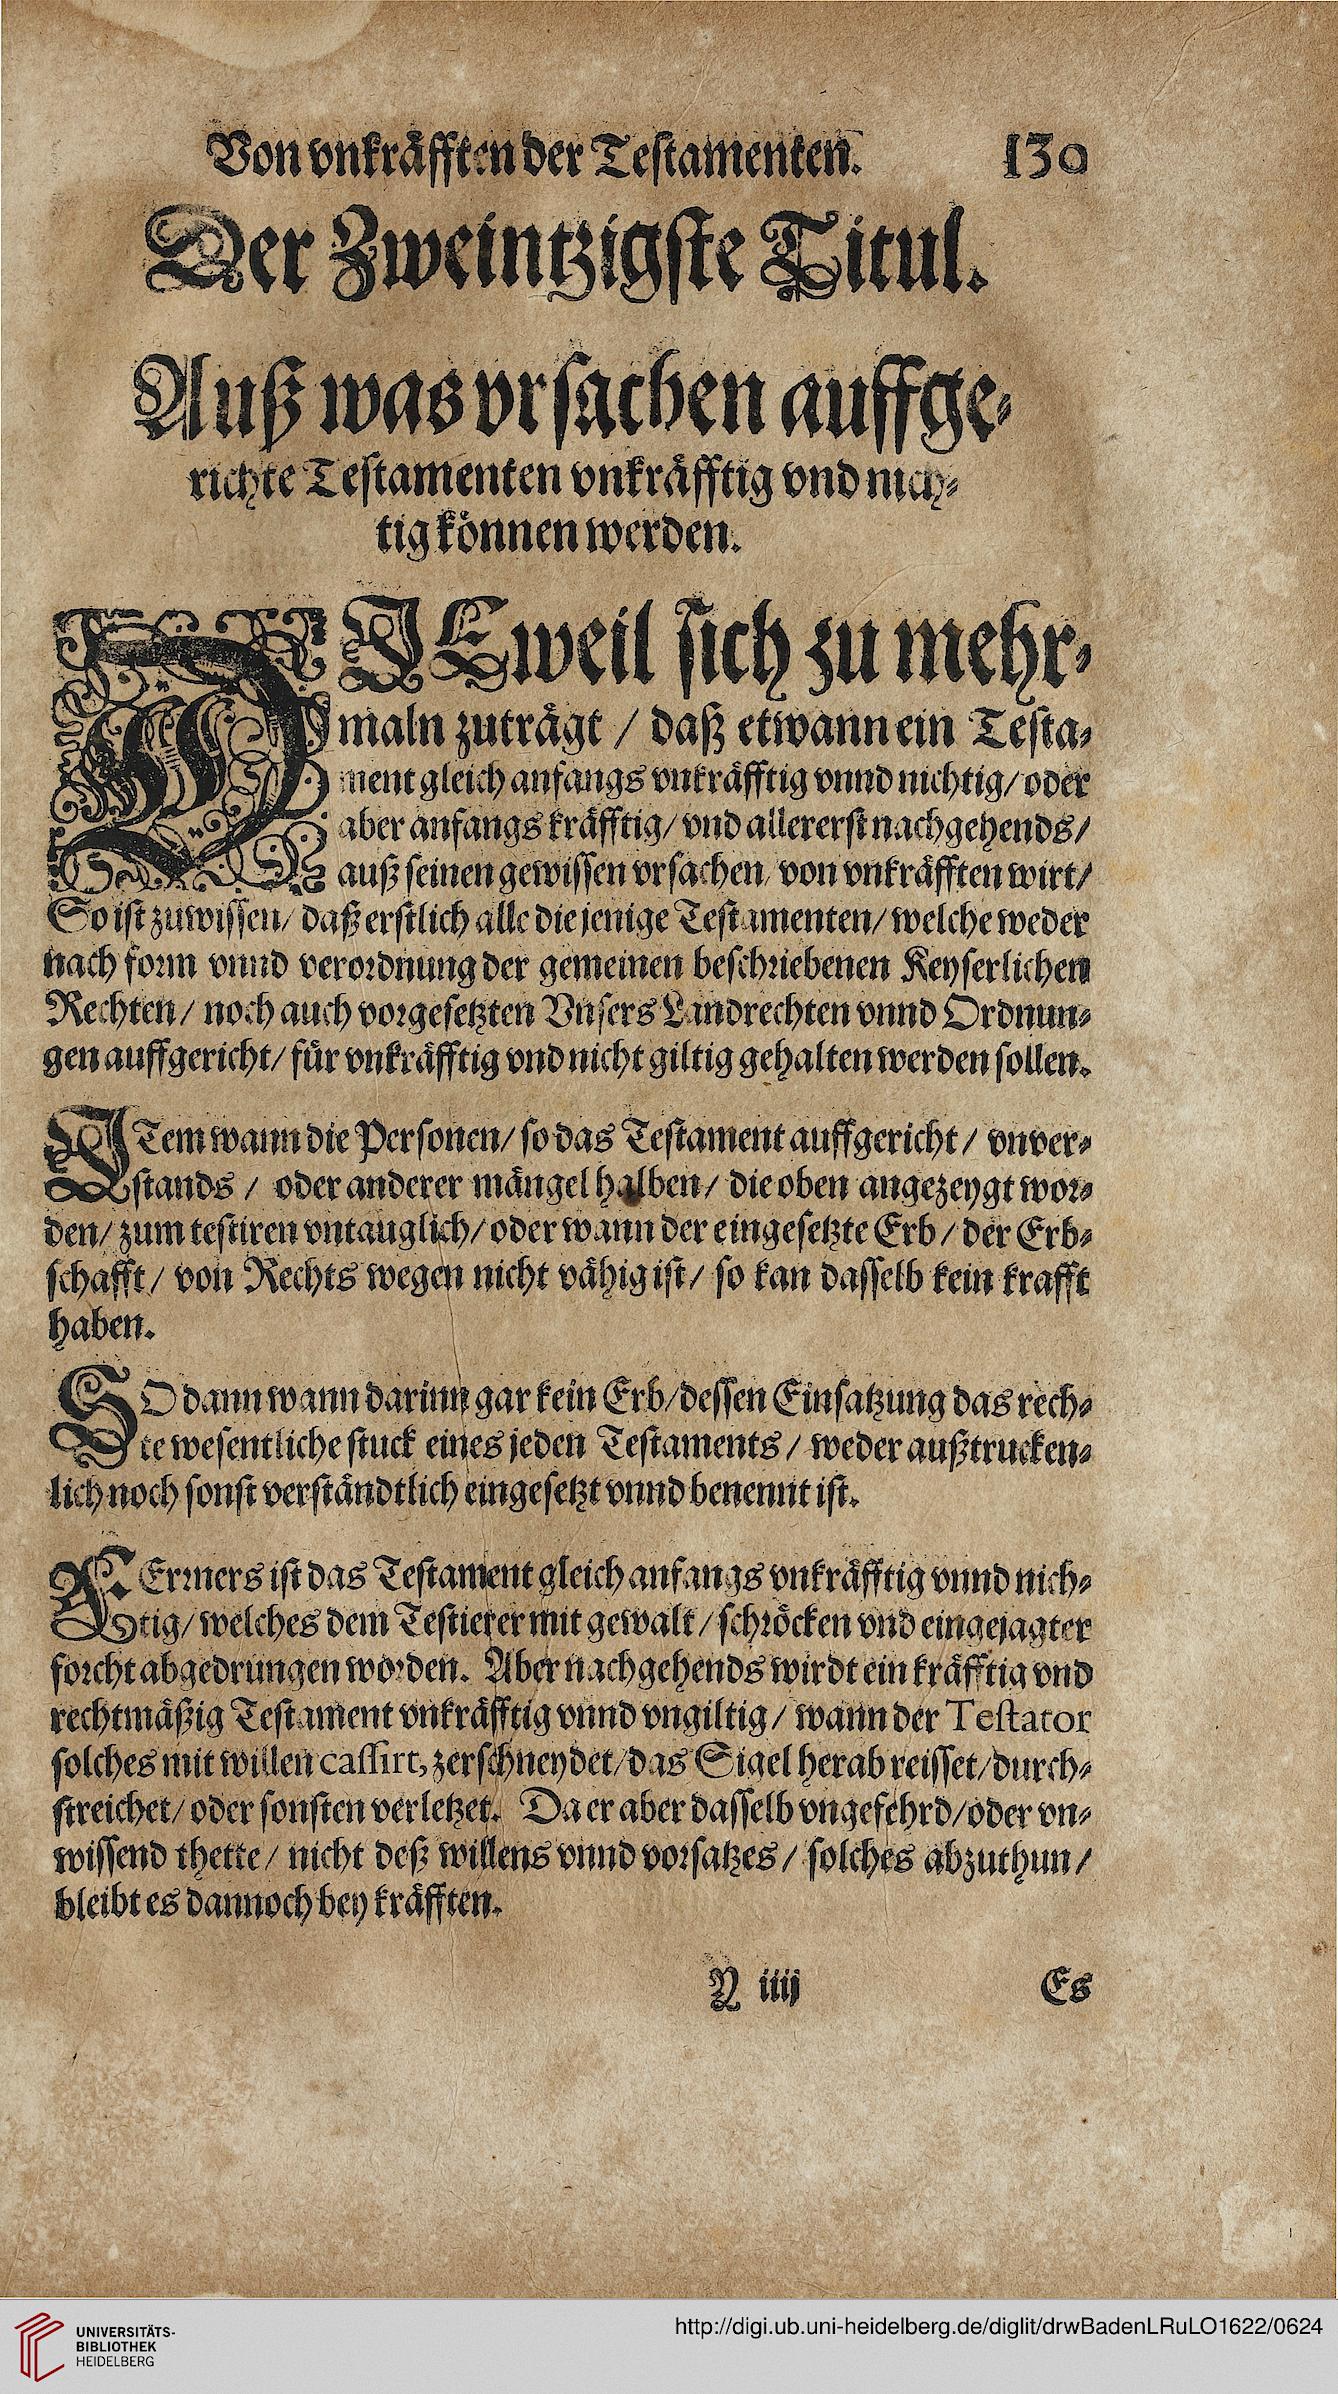 Von vnkräfften der Testamenten. 130
Der Zweintzigste Titul.
Auß was vrsachen auffge-
richte Testamenten vnkräfftig vnd nich-
tig können werden.
DIEweil sich zu mehr-
maln zuträgt / daß etwann ein Testa-
ment gleich anfangs vnkräfftig vnnd nichtig / oder
aber anfangs kräfftig / vnd allererst nachgehends /
auß seinen gewissen vrsachen / von vnkräfften wirt /
So ist zuwissen / daß erstlich alle die jenige Testamenten / welche weder
nach form vnnd verordnung der gemeinen beschriebenen Keyserlichen
Rechten / noch auch vorgesetzten Vnsers Landrechten vnnd Ordnun-
gen auffgericht / für vnkräfftig vnd nicht giltig gehalten werden sollen.
ITem wann die Personen / so das Testament auffgericht / vnver-
stands / oder anderer mängel halben / die oben angezeygt wor-
den / zum testiren vntauglich / oder wann der eingesetzte Erb / der Erb-
schafft / von Rechts wegen nicht vähig ist / so kan dasselb kein krafft
haben.
SO dann wann darinn gar kein Erb / dessen Einsatzung das rech-
te wesentliche stuck eines jeden Testaments / weder außtrucken-
lich noch sonst verständtlich eingesetzt vnnd benennt ist.
FErmers ist das Testament gleich anfangs vnkräfftig vnnd nich-
tig / welches dem Testierer mit gewalt / schröcken vnd eingejagter
forcht abgedrungen worden. Aber nachgehends wirdt ein kräfftig vnd
rechtmäßig Testament vnkräfftig vnnd vngiltig / wann der Testator
solches mit willen cassirt, zerschneydet / das Sigel herab reisset / durch-
streichet / oder sonsten verletzet. Da er aber dasselb vngefehrd / oder vn-
wissend thette / nicht deß willens vnnd vorsatzes / solches abzuthun /
bleibt es dannoch bey kräfften.
Y iiij Es
UNIVERSITÄTS-
BIBLIOTHEK
HEIDELBERG
http://digi.ub.uni-heidelberg.de/diglit/drwBadenLRuLO1622/0624